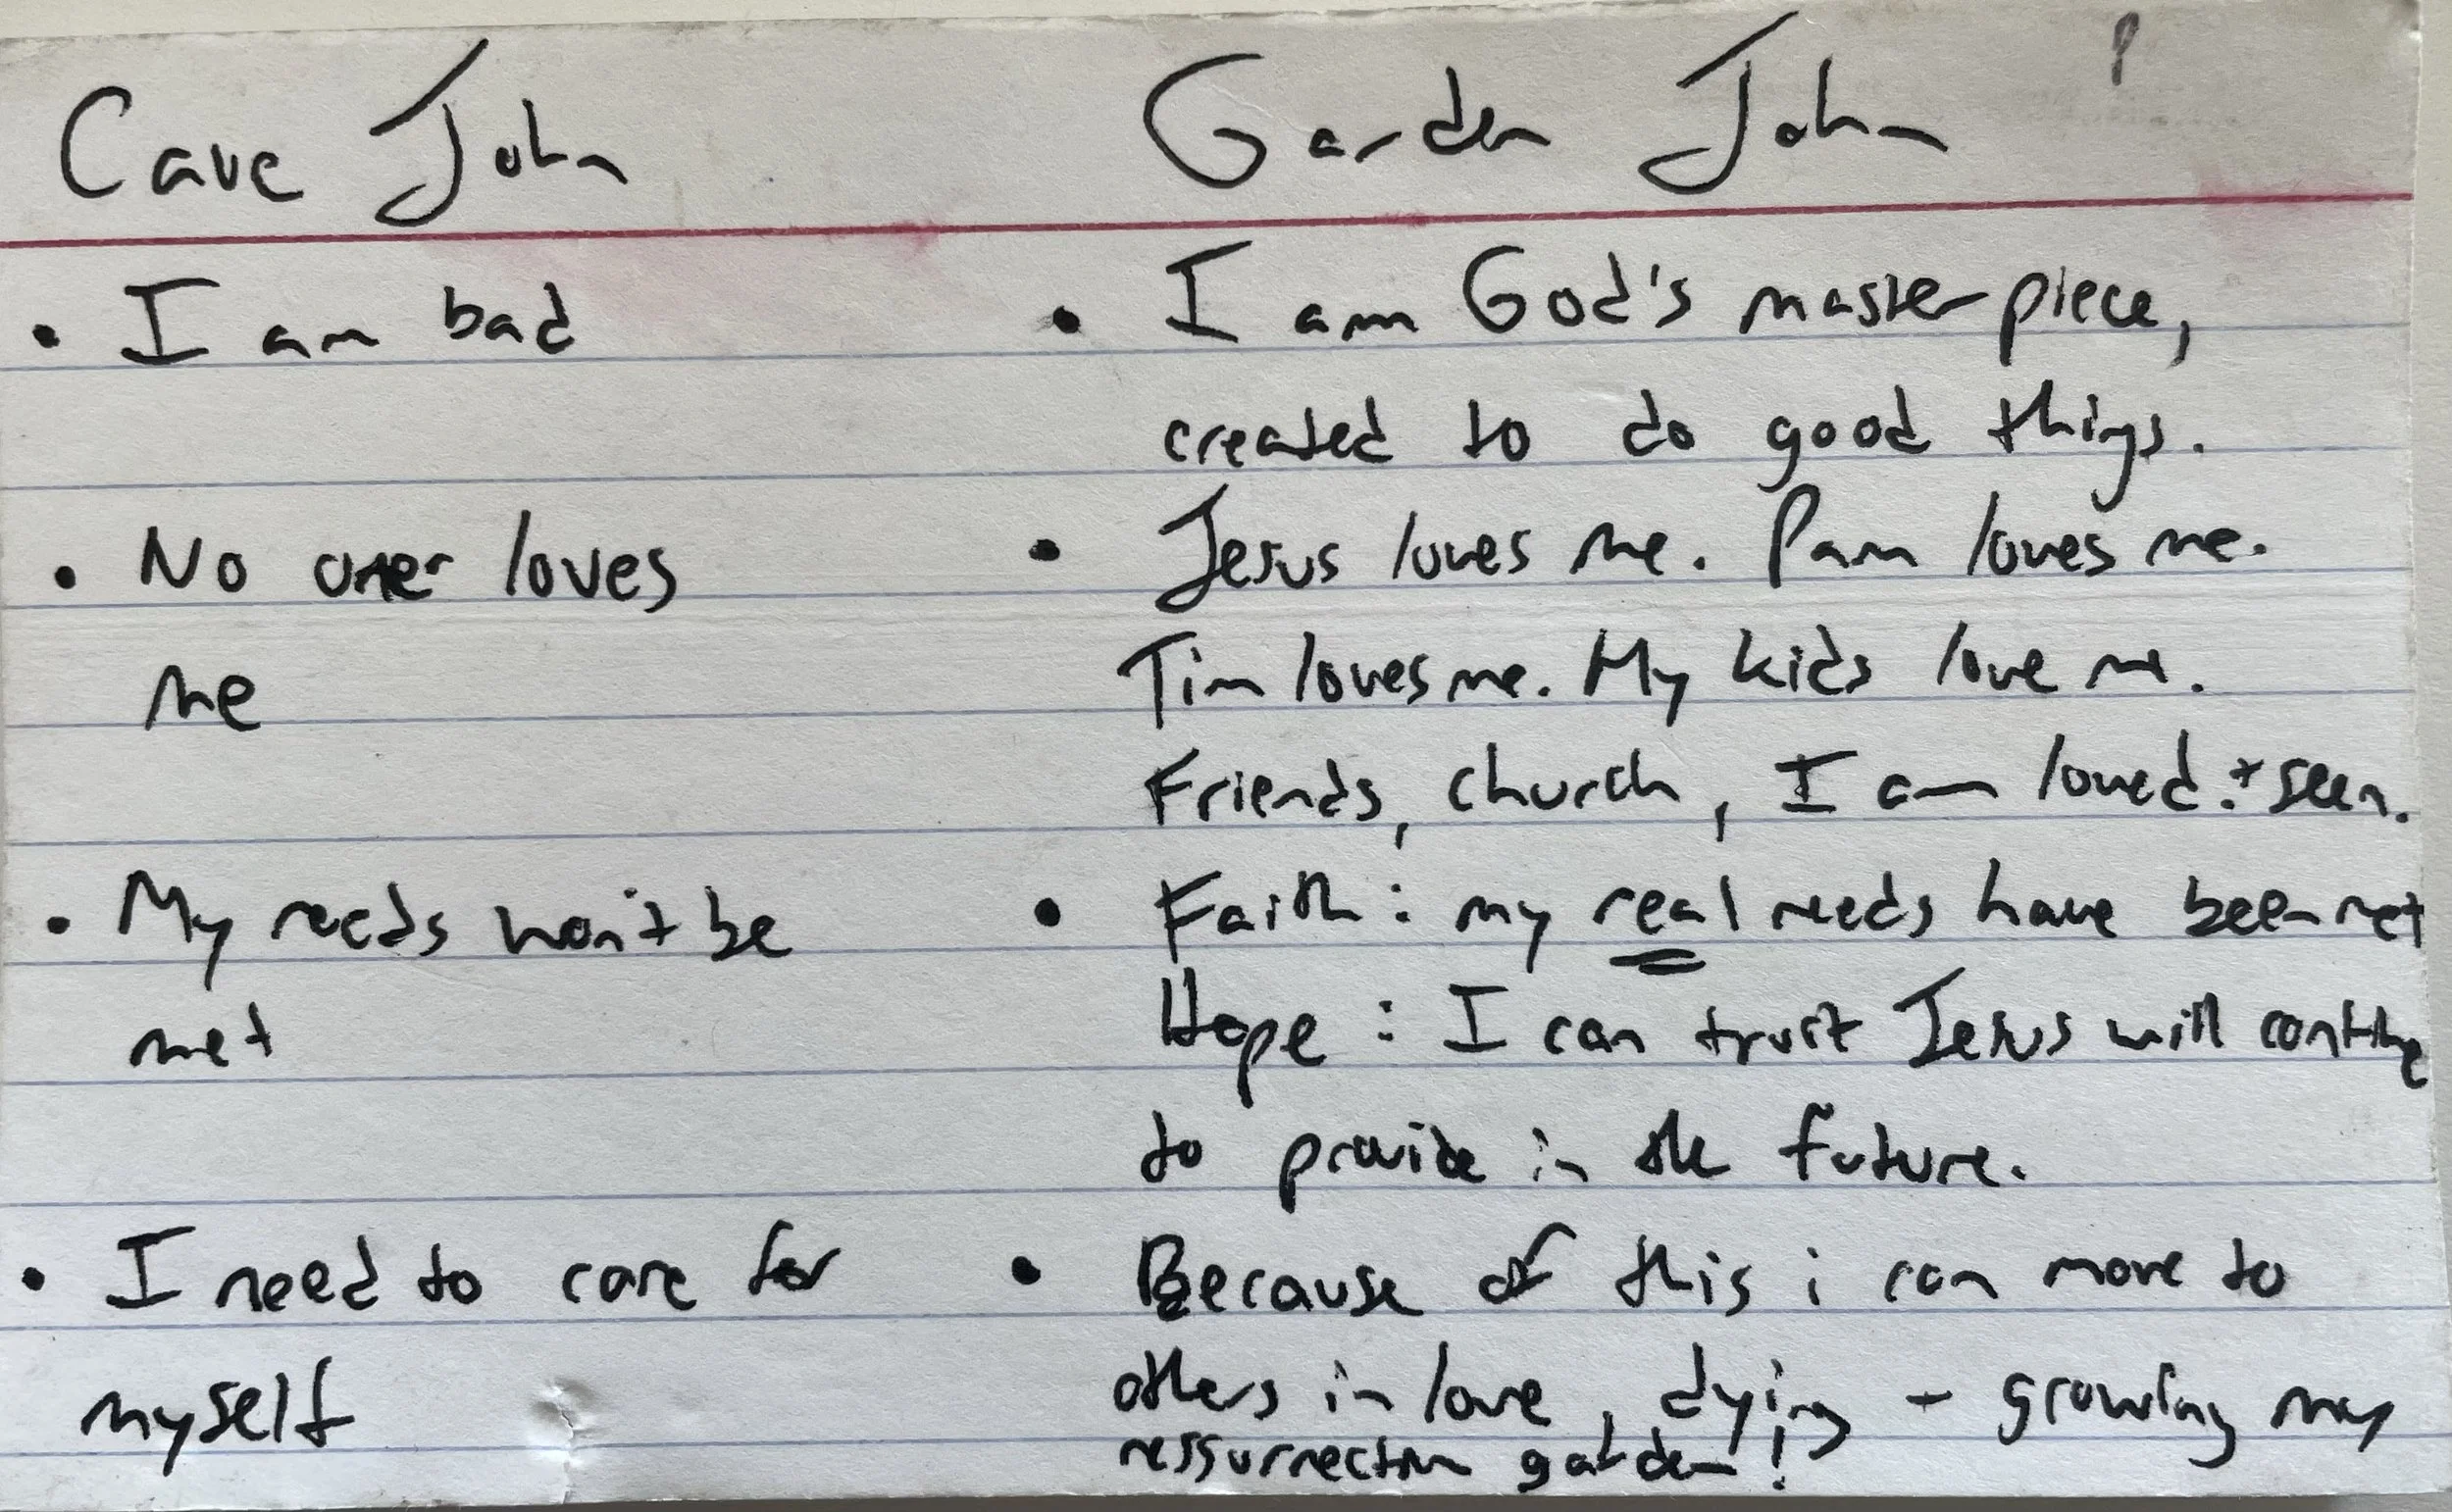 Cave John
• I am bad
• No one loves
me
• My needs won't be
met
• I need to care for
myself
Garden John
• I am God's masterpiece,
created to do good things.
• Jesus loves me. Pam loves me.
Tim loves me. My kids love me.
Friends, church, I am loved. + seen.
• Faith: my real needs have been met
Hope: I can trust Jesus will continue
to provide in the future.
• Because of this i can move to
others in love, dying + growing my
ressurrection garden!